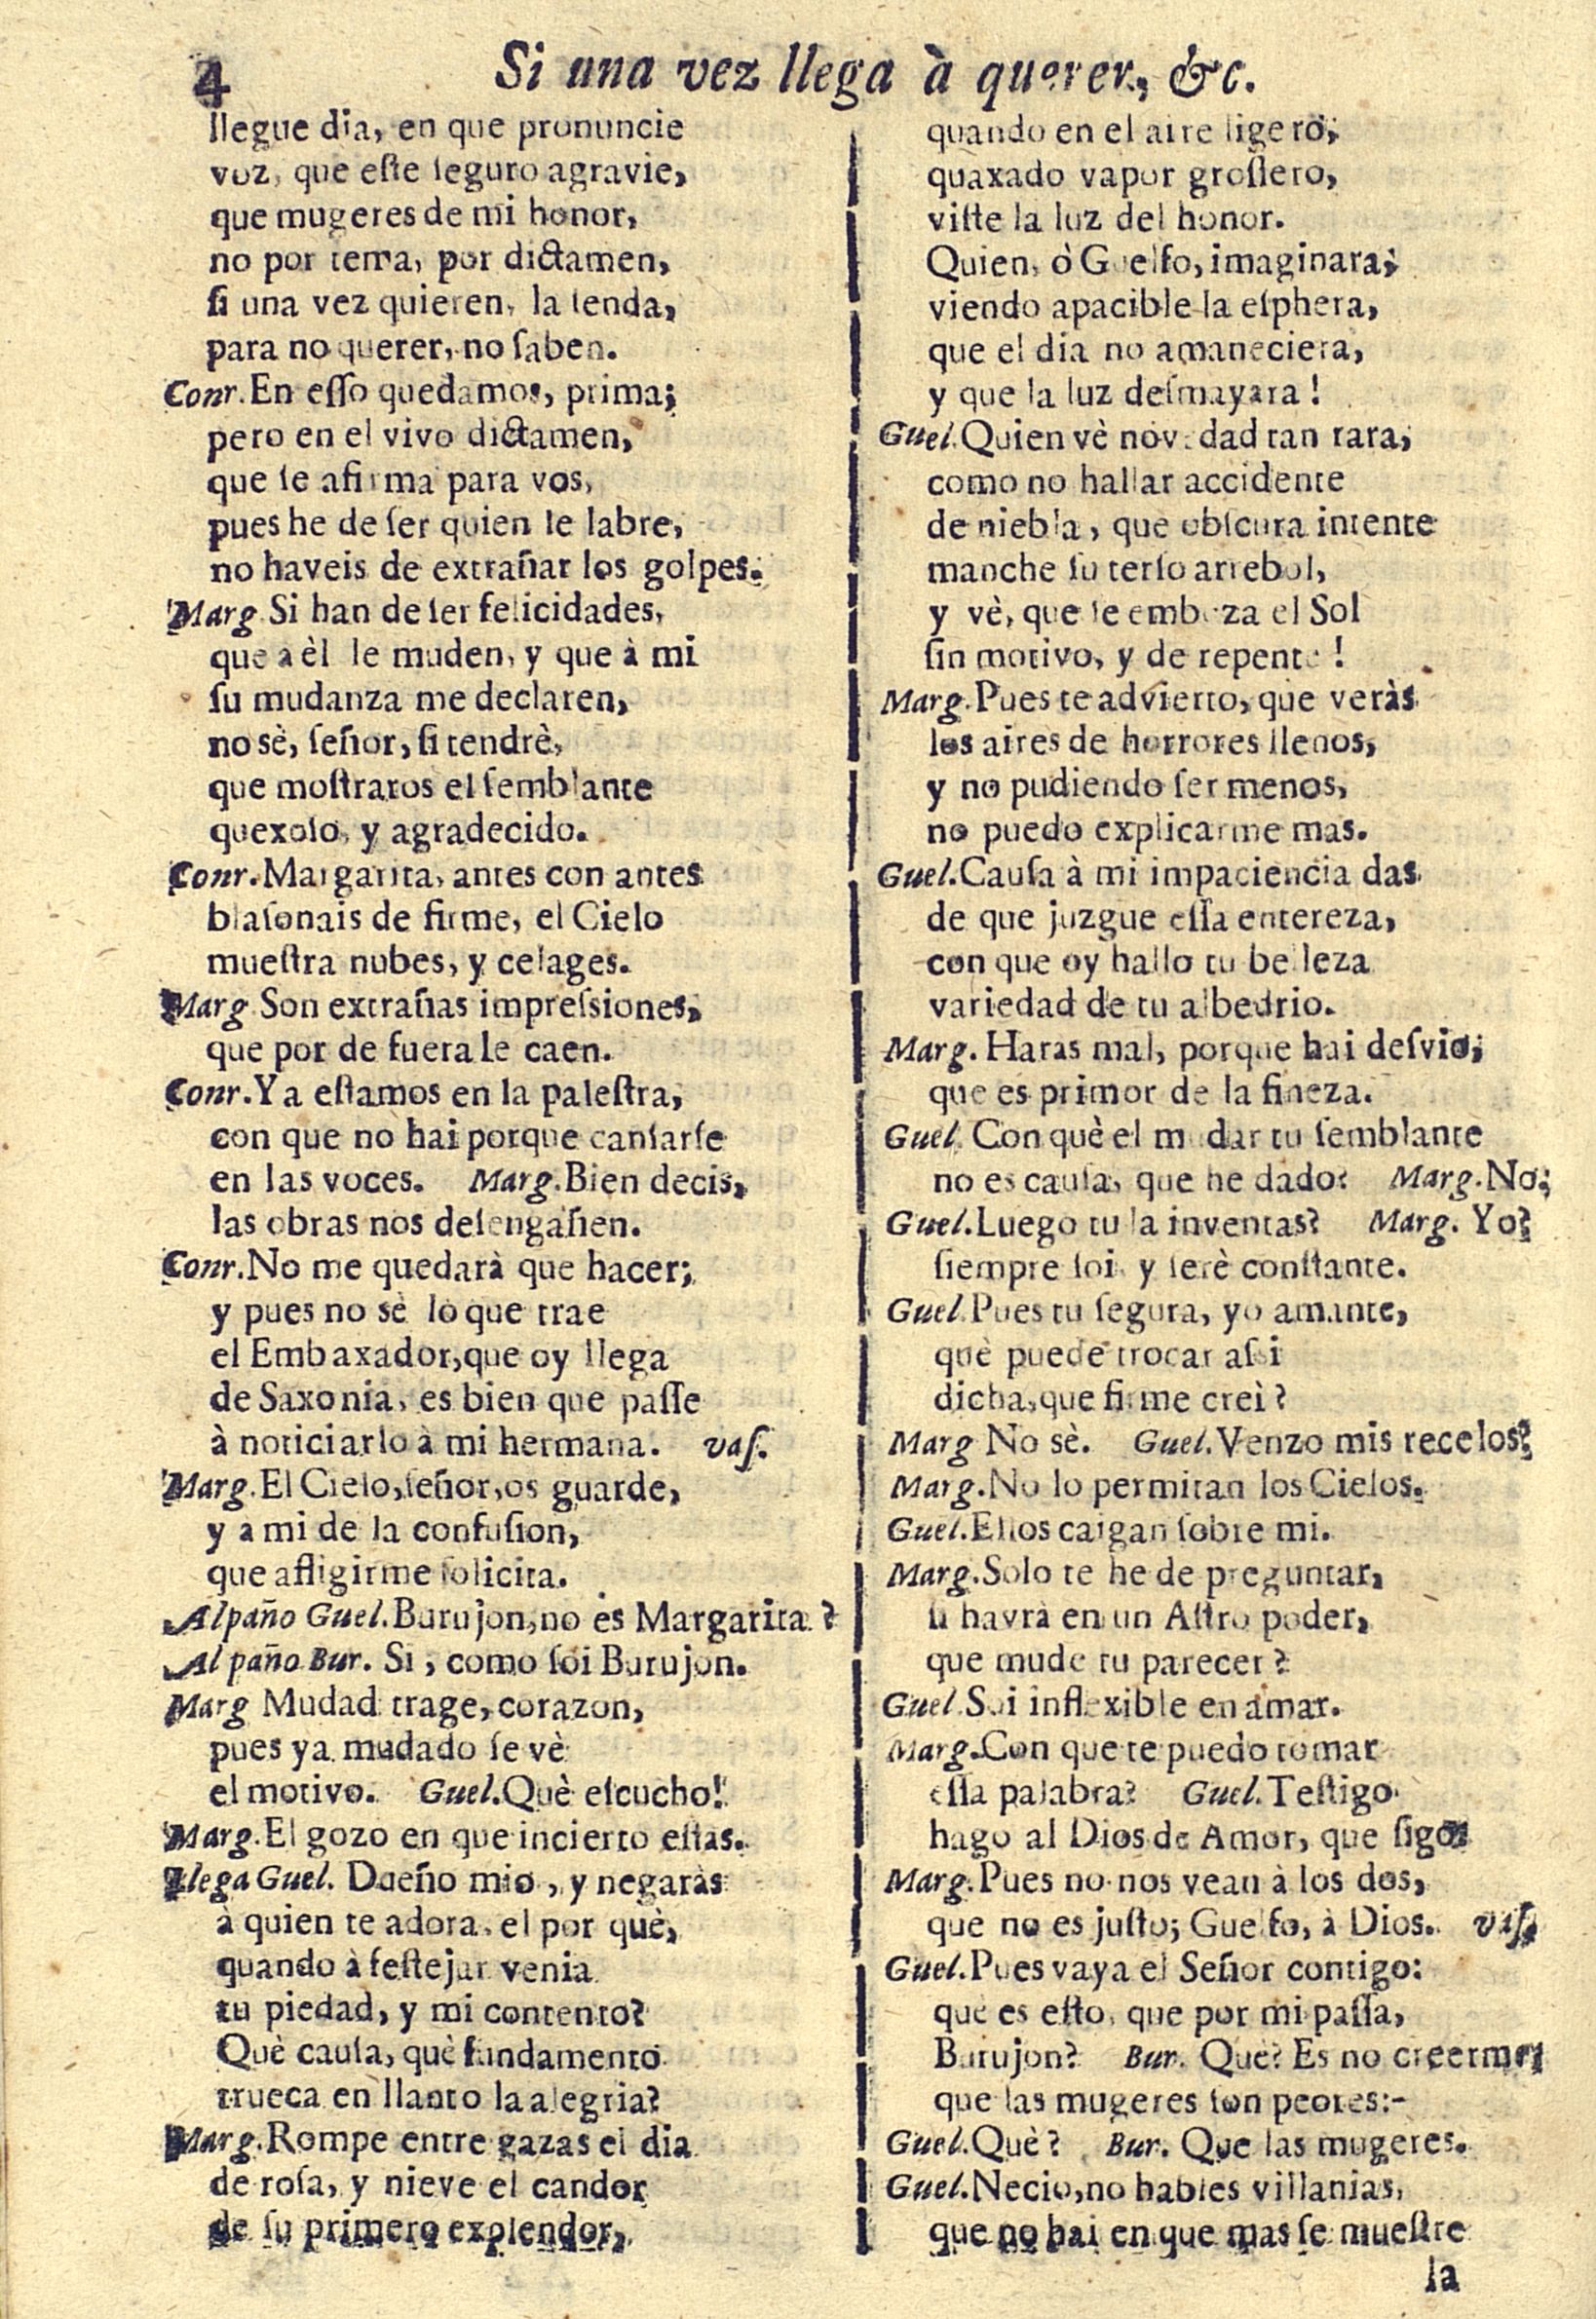 4
Si una vez llega à querer, &c.
llegue dia, en que pronuncie
voz, que eſte ſeguro agravie,
que mugeres de mi honor,
no por tema, por dictamen,
ſi una vez quieren, la ſenda,
para no querer, no ſaben.
Conr. En eſſo quedamos, prima;
pero en el vivo dictamen,
que ſe afirma para vos,
pues he de ſer quien le labre,
no haveis de extrañar los golpes.
Marg. Si han de ſer felicidades,
que à èl le muden, y que à mi
ſu mudanza me declaren,
no sè, ſeñor, ſi tendrè,
que moſtraros el ſemblante
quexoſo, y agradecido.
Conr. Margarita, antes con antes
blaſonais de firme, el Cielo
mueſtra nubes, y celages.
Marg. Son extrañas impreſsiones,
que por de fuera le caen.
Conr. Ya eſtamos en la paleſtra,
con que no hai porque canſarſe
en las voces. Marg. Bien decis,
las obras nos deſengañen.
Conr. No me quedarà que hacer;
y pues no sè lo que trae
el Embaxador, que oy llega
de Saxonia, es bien que paſſe
à noticiarlo à mi hermana. vaſ.
Marg. El Cielo, ſeñor, os guarde,
y a mi de la confuſion,
que afligirme ſolicita.
Al paño Guel. Burujon, no es Margarita?
Al paño Bur. Si, como ſoi Burujon.
Marg Mudad trage, corazon,
pues ya mudado ſe vè
el motivo. Guel. Què eſcucho!
Marg. El gozo en que incierto eſtas.
Llega Guel. Dueño mio, y negaràs
à quien te adora, el por què,
quando à feſtejar venia
tu piedad, y mi contento?
Què cauſa, què fundamento
trueca en llanto la alegria?
Marg. Rompe entre gazas el dia
de roſa, y nieve el candor
de ſu primero explendor,
quando en el aire ligero,
quaxado vapor groſſero,
viſte la luz del honor.
Quien, ò Guelfo, imaginara,
viendo apacible la eſphera,
que el dia no amaneciera,
y que la luz deſmayara!
Guel. Quien vè novedad tan rara,
como no hallar accidente
de niebla, que obſcura intente
manche ſu terſo arrebol,
y vè, que ſe emboza el Sol
ſin motivo, y de repente!
Marg. Pues te advierto, que veràs
los aires de horrores llenos,
y no pudiendo ſer menos,
no puedo explicarme mas.
Guel. Cauſa à mi impaciencia das
de que juzgue eſſa entereza,
con que oy hallo tu belleza
variedad de tu albedrio.
Marg. Haras mal, porque hai deſvio,
que es primor de la fineza.
Guel. Con què el mudar tu ſemblante
no es cauſa, que he dado? Marg. No;
Guel. Luego tu la inventas? Marg. Yo?
ſiempre ſoi, y ſerè conſtante.
Guel. Pues tu ſegura, yo amante,
què puede trocar aſsi
dicha, que firme creì?
Marg No sè. Guel. Venzo mis recelos?
Marg. No lo permitan los Cielos.
Guel. Ellos caigan ſobre mi.
Marg. Solo te he de preguntar,
ſi havrà en un Aſtro poder,
que mude tu parecer?
Guel. Soi inflexible en amar.
Marg. Con que te puedo tomar
eſſa palabra? Guel. Teſtigo
hago al Dios de Amor, que ſigo.
Marg. Pues no nos vean à los dos,
que no es juſto; Guelfo, à Dios. vaſ.
Guel. Pues vaya el Señor contigo:
que es eſto, que por mi paſſa,
Burujon? Bur. Què? Es no creerme,
que las mugeres ſon peores:-
Guel. Què? Bur. Que las mugeres.
Guel. Necio, no hables villanias,
que no hai en que mas ſe mueſtre
la